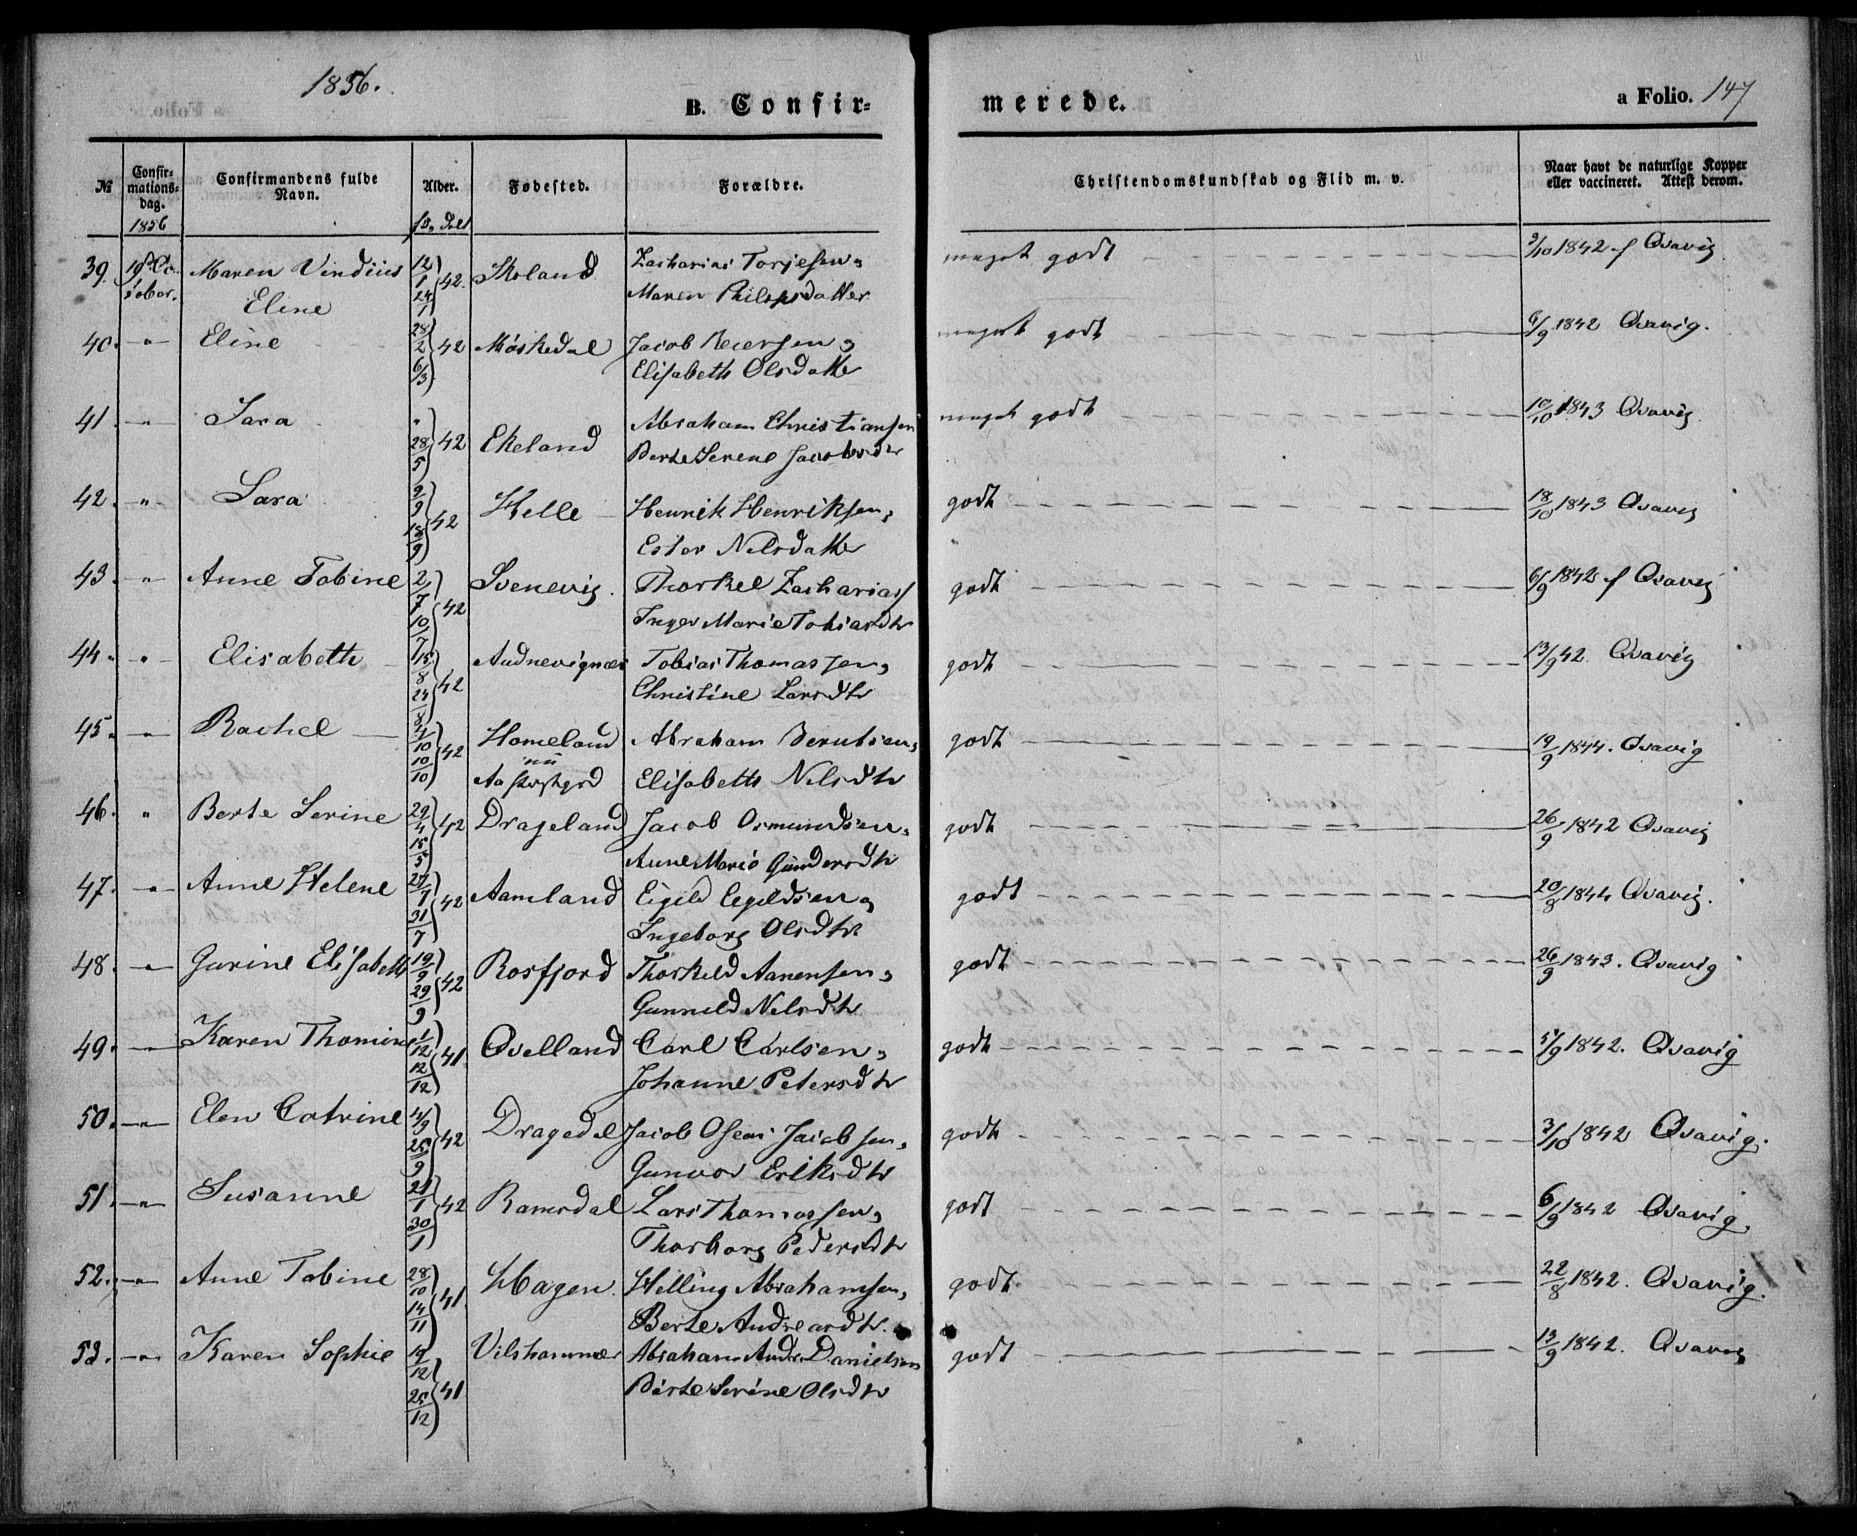 1856.
B. Confir=
merede.
a Folio. 147
№
Confir-
mations-
dag.
Confirmandens fulde
Navn.
Alder.
Fødested.
Forældre.
Christendomskundskab og Flid m. v.
Naar havt de naturlige Kopper
eller vaccineret. Attest derom.
1856
fd. døbt
39. 19de Oc- Maren Vindius 12/1 24/1 42. Skoland Zacharias Torjesen, meget godt 3/10 1842 f Qvavig
tober. Eline Maren Philipsdatter
40. " Eline 28/2 6/3 42 Møskedal Jacob Reiersen, meget godt 6/9 1842 Qvavig.
Elisabeth Olsdatter
41. " Sara " 28/5 42 Ekeland Abraham Christiansen meget godt 10/10 1843 Qvavig
Berte Serene Jacobsdr
42. " Sara 9/9 18/9 42 Helle Henrik Henriksen, godt 18/10 1843 Qvavig
Ester Nilsdatter
43. " Anne Tobine 2/7 10/7 42 Svenevig. Thorkel Zacharias godt 6/9 1842 f Qvavig
Inger Marie Tobiasdtr
44. " Elisabeth 15/8 24/8 42 Audnevignæs Tobias Thomassen, godt 13/9 42. Qvavig
Christine Larsdtr
45. " Rachel 4/10 10/10 42 Homeland Abraham Berntsen, godt 19/9 1844. Qvavig
nu
Elisabeth Nilsdtr
46. " Berte Serine 29/4 15/5 42 Drageland Jacob Osmundsen, godt 26/9 1842 Qvavig
Anne Marie Gundersdtr
47. " Anne Helene 27/7 31/7 42 Aamland Eigild Eegildsen, godt 20/8 1844 Qvavig.
Ingeborg Olsdtr.
48. " Gurine Elisabeth 19/9 29/9 42 Rosfjord Thorkild Aanensen, godt 26/9 1843. Qvavig
Gunnild Nilsdtr
49. " Karen Thomine 1/12 12/12 41. Qvelland Carl Carlsen, godt 5/9 1842. Qvavig
Johanne Petersdtr
50. " Elen Catrine 11/9 25/9 42 Dragedal Jacob Oseas Jacobsen, godt 3/10 1842 Qvavig.
Gunvor Eriksdtr
51. " Susanne 21/1 30/1 42 Ramsdal Lars Thomassen, godt 6/9 1842 Qvavig.
Thorborg Pedersdtr
52. " Anne Tobine 28/10 14/11 41. Hagen. Helling Abrahamsen, godt 22/8 1842. Qvavig.
Berte Andreasdtr.
53. " Karen Sophie 19/12 25/12 41 Vilshammer Abraham Andr. Danielsen godt 13/9 1842. Qvavig
Berte Serine Olsdtr